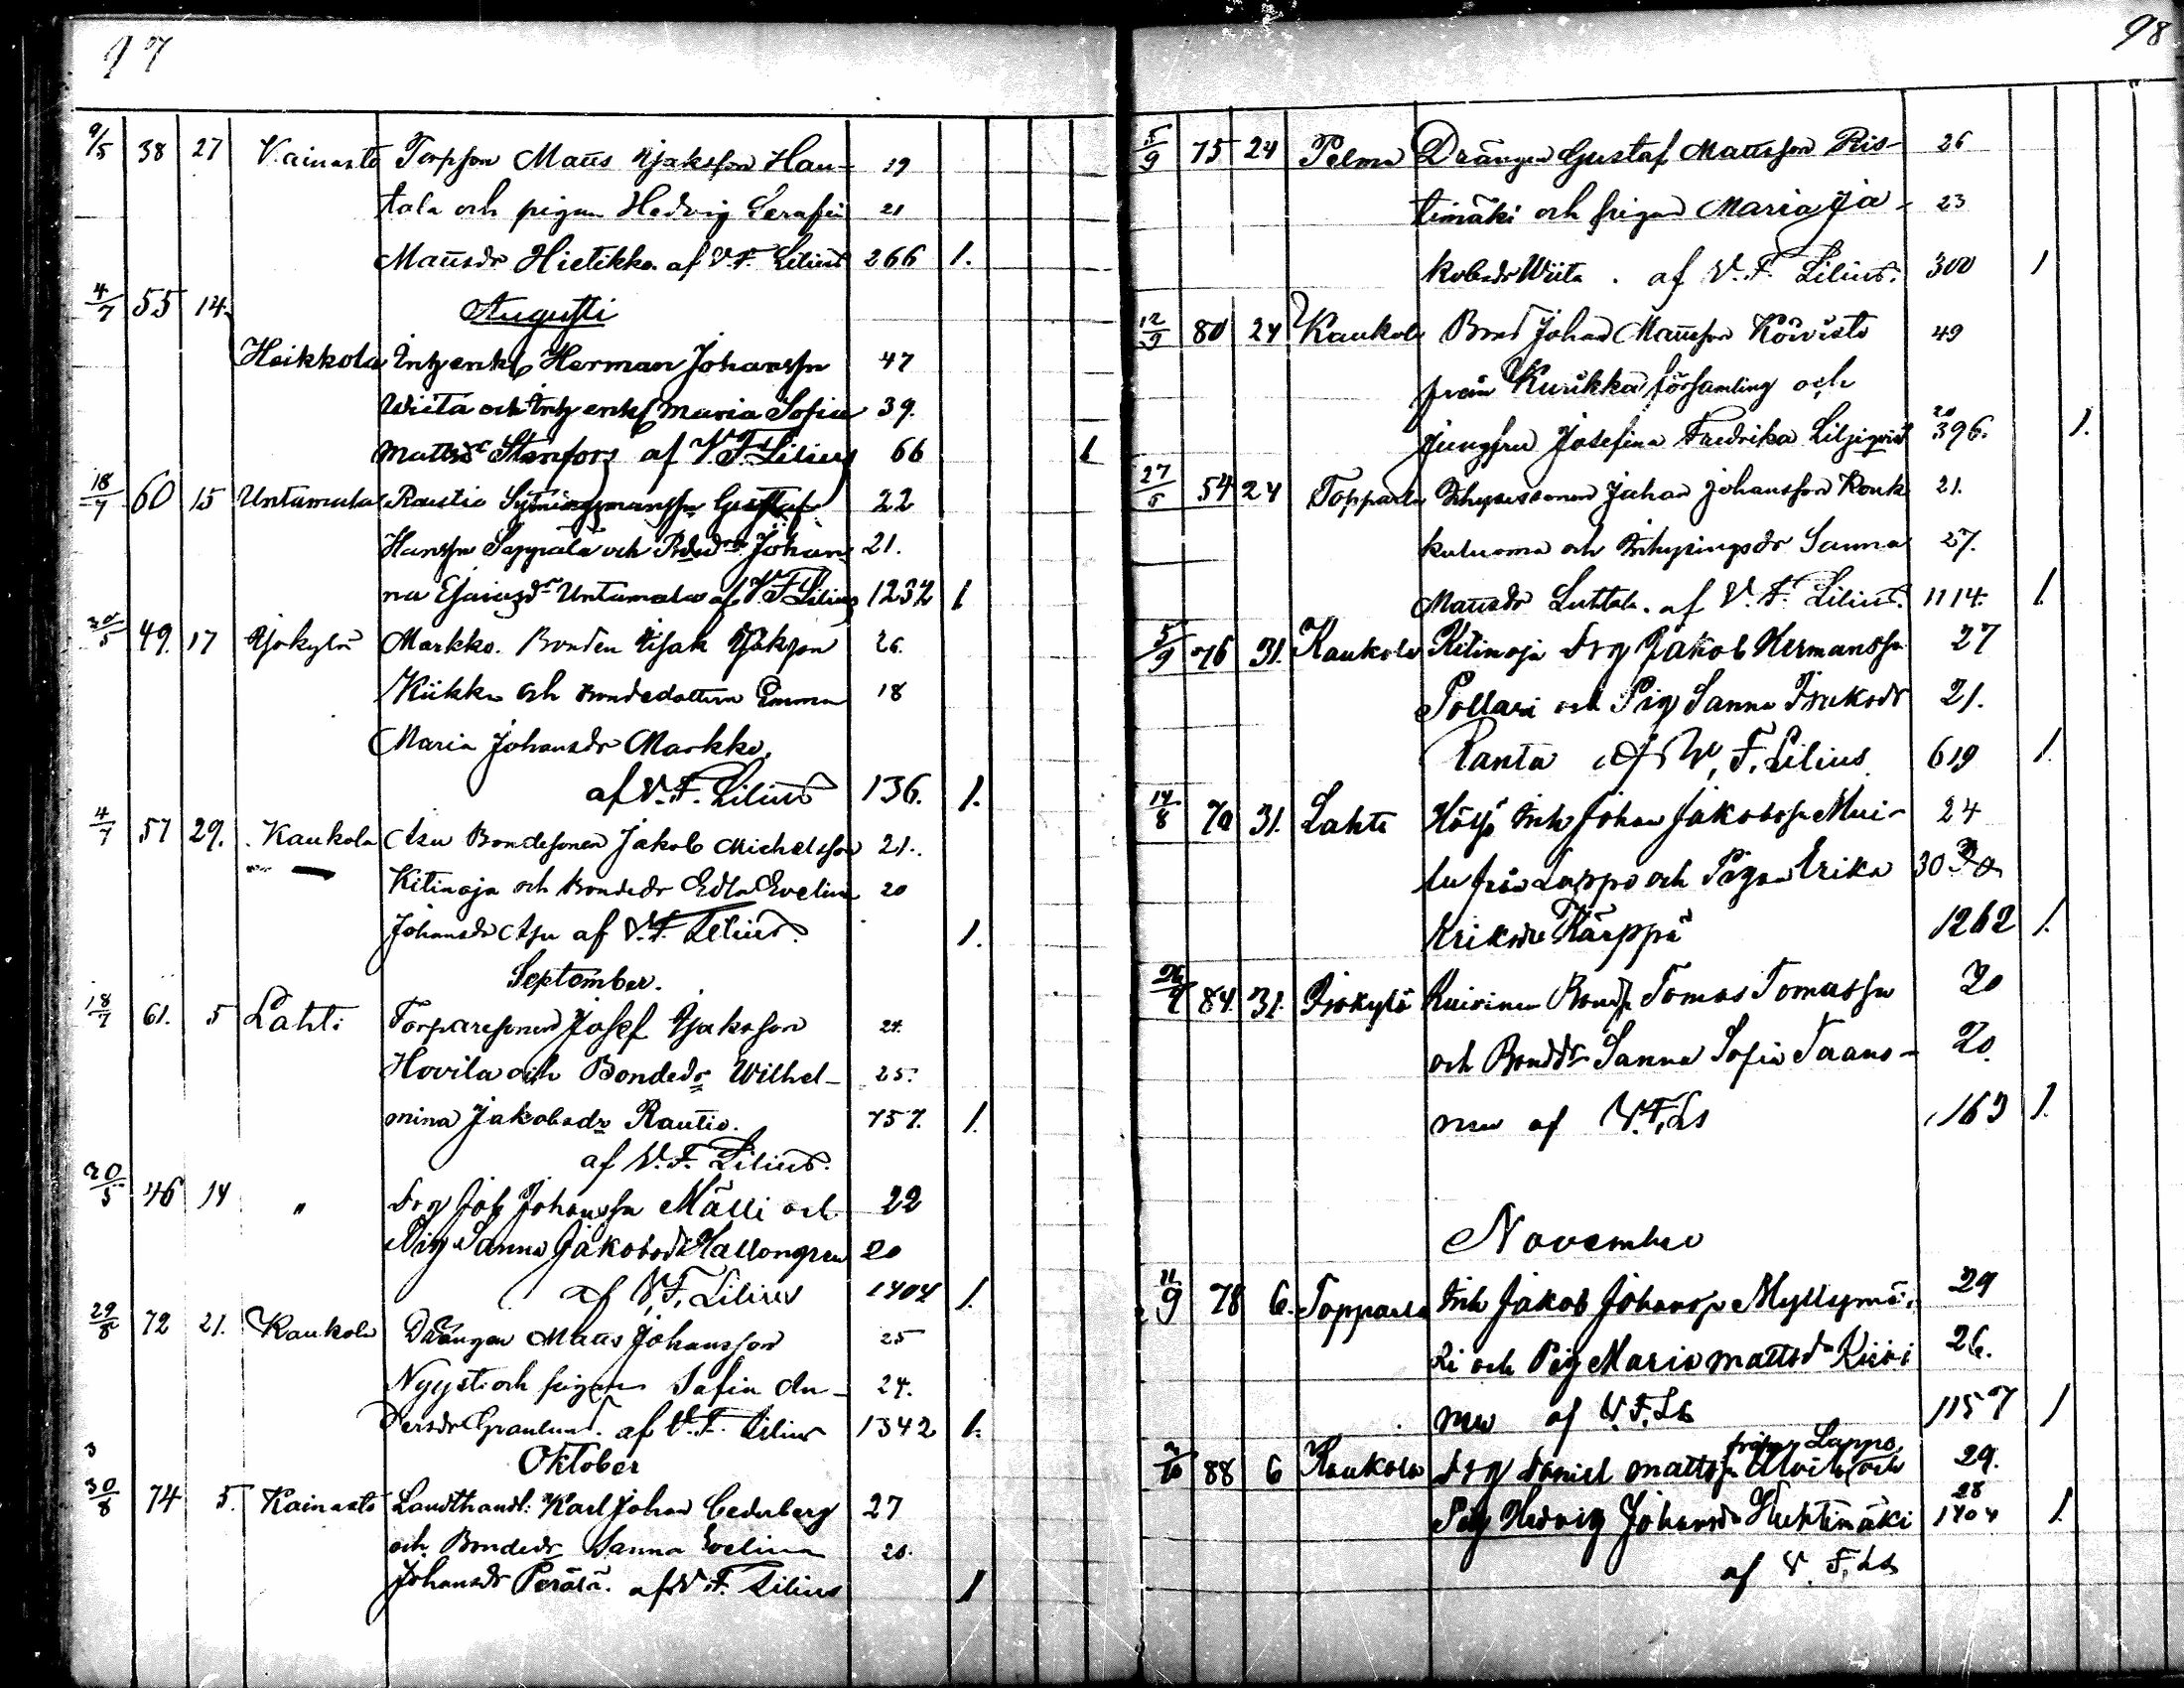 97
9/5 38 27 Kainasto Torpson Matts Isaksson Hau- 19
tala och pigan Hedvig Serafia 21
Mattsdr Hietikko af V. F. Lilius 266 1.
4/7 55 14.
Augusti
Heikkola Inh enkl Herman Johansson 47
Wiita och Inh enk Maria Sofia 39.
Mattsdr Stenfors af V. F. Lilius 66 1
18/7 60 15 Untamala Rautio Sytningsmansson Gustaf 22
Hansson Seppälä och Bdedr Johan 21.
na Esaiasdr Untamala af V. F. Lilius 1232 1
20/5 49. 17 Yjokylä Markko. Bonden Isak Isakson 26.
Kiikka och Bondedottern Emma 18
Maria Johansdr Markko,
af V. F. Lilius 136. 1.
4/7 57 29. Kaukola Asu Bondesonen Jakob Michelsson 21.
Kitinoja och Bondedr Edla Evelina 20
Johansdr Asu af V. F. Lilius. 1.
September.
18/7 61. 5 Lahti Torparesonen Josef Isaksson 24.
Hovila och Bondedr Wilhel- 25.
mina Jakobsdr Rautio. 757. 1.
af V. F. Lilius.
20/5 46 14 " Drg Joh Johansson Mälli och 22
Pig Sanna Jakobsdr Hallongren 20
af V. F. Lilius 1404 1.
29/8 72 21. Kaukola Drängen Matts Johansson 25
Nyysti och pigan Sofia An- 24.
dersdr Granlund. af V. F. Lilius 1342 1.
3
Oktober
30/8 74 5. Kainasto Landthandl: Karl Johan Cederberg 27
och Bondedr Sanna Evelina 20.
Johansdr Perälä. af V. F. Lilius 1
98
5/9 75 24 Pelma Drängen Gustaf Mattsson Ris- 26
timäki och pigan Maria Ja- 23
kobsdr Wiita. af V. F. Lilius. 300 1
12/9 80 24 Kaukola Bond Johan Mattsson Koivisto 49
från Kurikka församling och
jungfru Josefina Fredrika Liljeqvist 20 396. 1.
27/6 54 24 Topparla Inhysessonen Johan Johansson Kouk 21.
kuluoma och Inhysingsdr Sanna 27.
Mattsdr Luhtala. af V. F. Lilius. 1114. 1.
5/9 76 31. Kaukola Kitinoja Drg Jakob Hermansson 27
Pollari och Pig Sanna Isaksdr 21.
Ranta af V. F. Lilius 619 1.
14/8 70 31. Lahti Höijö Inh Johan Jakobsson Mui- 24
lu från Lappo och Pigan Erika 30
Eriksdr Kärppä 1262 1.
84. 31. Yjokylä Kuivinen Bondsn Tomas Tomasson 20
och Bondedr Sanna Sofia Taans- 20.
nu af V. F. Ls 163 1.
November
11/9 78 6. Topparla Inh Jakob Johansson Myllymä- 29
ki och Pig Maria Mattsdr Kiivi 26.
nen af V. F. Ls 1157 1
från Lappo,
88 6 Kaukola Drg Daniel Mattsson och 29.
Pig Hedvig Johansdr Huhtimäki 28 1404 1.
af V. F. Ls